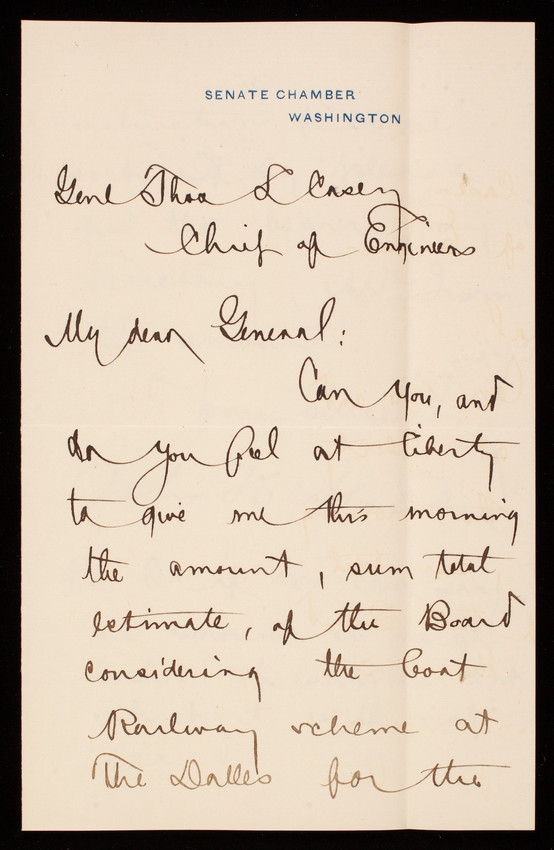 SENATE CHAMBER
WASHINGTON
Genl Thos L Casey
Chief of Engineers
My dear General:
Can you, and
do you feel at liberty
to give me this morning
the amount, sum total
estimate, of the Board
considering the boat
Railway scheme at
The Dalles for the